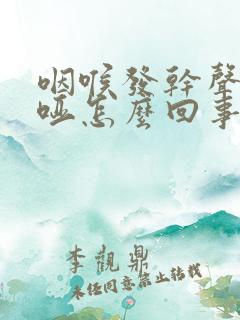 咽喉發幹聲
啞怎麼回事
李觀鼎
未任同意禁止转载